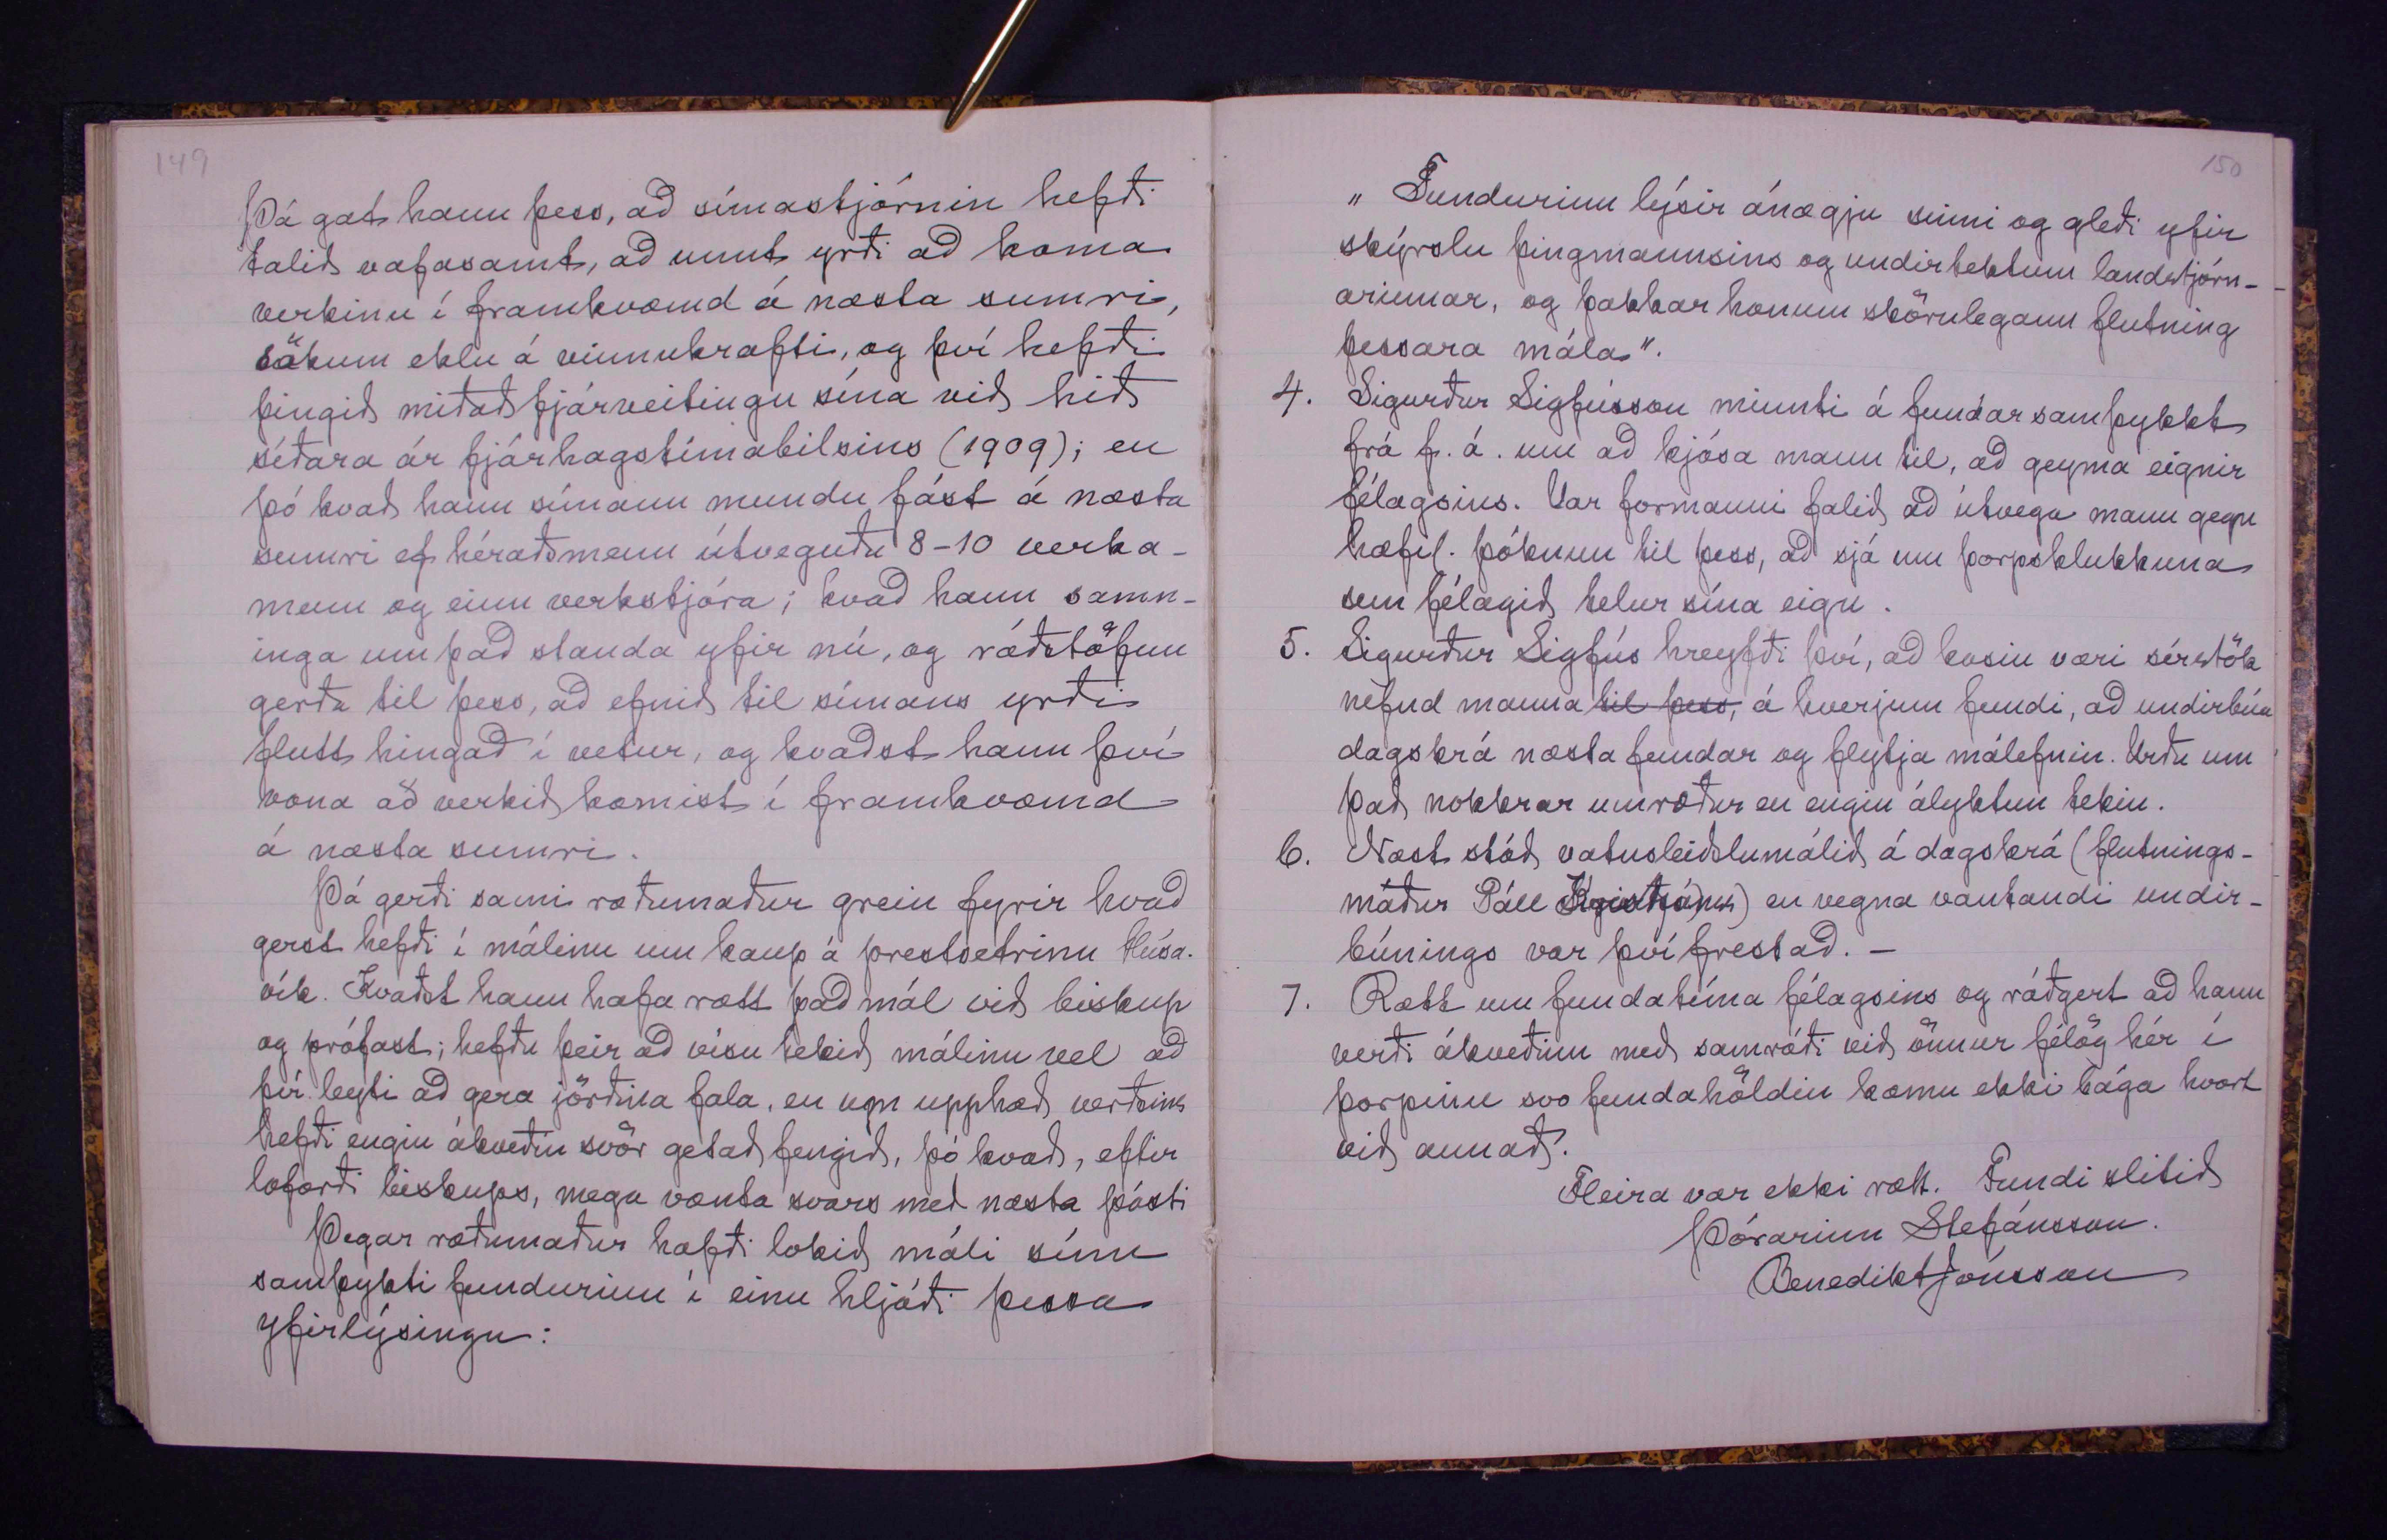 149
Þá gat hann þess, að símastjórnin hefði
talið vafasamt, að unnt yrði að koma
verkinu í framkvæmd á næsta sumri,
sökum eklu á vinnukrafti, og því hefði
þingið miðað fjárveitingu sína við hið
síðara ár fjárhagstímabilsins (1909); en
þó kvað hann símann mundu fást á næsta
sumri ef héraðsmenn útveguðu 8-10 verka-
menn og einn verkstjóra; kvað hann samn-
inga um það standa yfir nú, og ráðstöfun
gerða til þess, að efnið til símans yrði
flutt hingað í vetur, og kvaðst hann því
vona að verkið kæmist í framkvæmd
á næsta sumri.
Þá gerði sami ræðumaður grein fyrir hvað
gerst hefði í málinu um kaup á prestsetrinu Húsa-
vík. Kvaðst hann hafa rætt það mál við biskup
og prófast; hefðu þeir að vísu tekið málinu vel að
því leyti að gera jörðina fala, en um upphæð verðsins
hefði engin ákveðin svör getað fengið, þó kvað, eftir
loforði biskups, mega vænta svars með næsta pósti
Þegar ræðumaður hafði lokið máli sínu
samþykti fundurinn í einu hljóði þessa
yfirlýsingu:
150
„Fundurinn lýsir ánægju sinni og gleði yfir
skýrslu þingmannsins og undirtektum landstjórn-
arinnar, og þakkar honum skörulegann flutning
þessara mála".
4. Sigurður Sigfússon minnti á fundarsamþykkt
frá f. á. um að kjósa mann til, að geyma eignir
félagsins. Var formanni falið að útvega mann gegn
hæfil. þóknun til þess, að sjá um þorpsklukkuna
sem félagið telur sína eign.
5. Sigurður Sigfús hreyfði því, að kosin væri sérstök
nefnd manna til þess, á hverjum fundi, að undirbúa
dagskrá næsta fundar og flytja málefnin. Urðu um
það nokkrar umræður en engin ályktun tekin.
6. Næst stóð vatnsleiðslumálið á dagskrá (flutnings-
máður Páll Kristjáns) en vegna vantandi undir-
búnings var því frestað. –
7. Rætt um fundatíma félagsins og ráðgert að hann
verði ákveðinn með samráði við önnur félög hér í
þorpinu svo fundahöldin kæmu ekki bága hvort
við annað.
Fleira var ekki rætt. Fundi slitið
Þórarinn Stefánsson.
Benedikt Jónsson